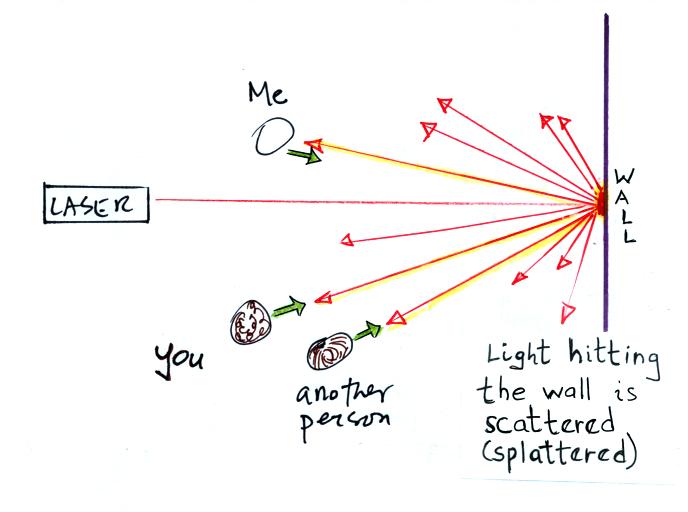 Me
LASER
WALL
you
another
person
Light hitting
the wall is
scattered
(splattered)